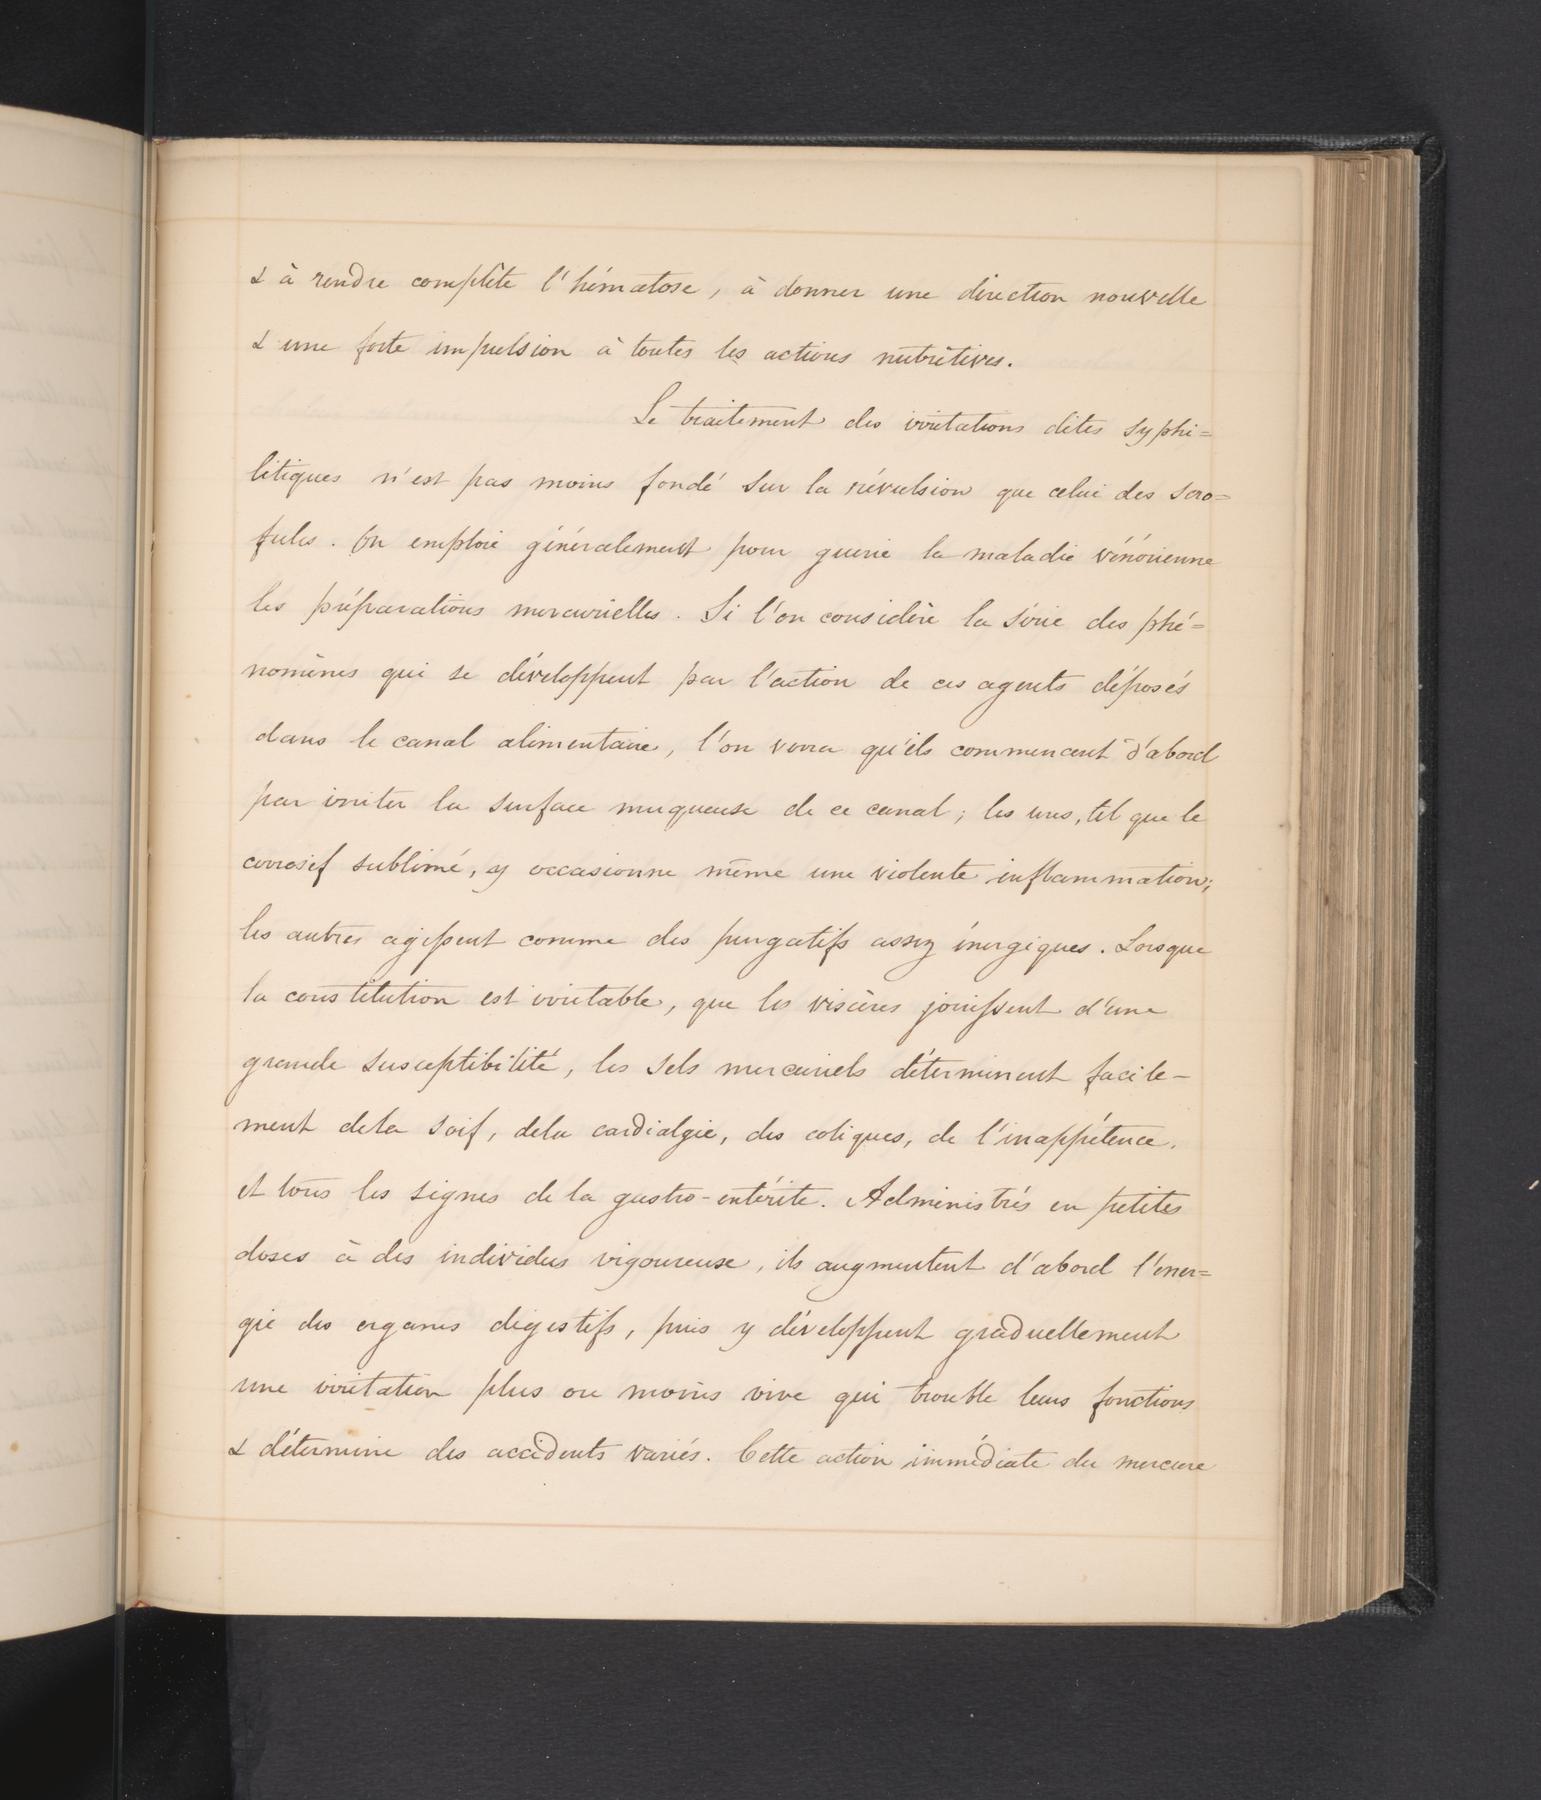 & à rendre complète l'hématose, à donner une direction nouvelle
& une forte impulsion à toutes les actions nutritives.
Le traitement des irritations dites syphi=
litiques n'est pas moins fondé sur la révulsion que celui des scro=
fules. On emploie généralement pour guérir la maladie vénérienne
les préparations mercurielles. Si l'on considère la série des phé=
nomènes qui se développent par l'action de ces agents déposés
dans le canal alimentaire, l'on verra qu'ils commencent d'abord
par irriter la surface muqueuse de ce canal; les uns, tel que le
corrosif sublimé, y occasionne même une violente inflammation;
les autres agissent comme des purgatifs assez énergiques. Lorsque
la constitution est irritable, que les viscères jouissent d'une
grande susceptibilité, les sels mercuriels déterminent facile-
ment dela soif, dela cardialgie, des coliques, de l'inappétence.
et tous les signes de la gastro-entérite. Administrés en petites
doses à des individus vigoureuse, ils augmentent d'abord l'éner=
gie des organes digestifs, puis y développent graduellement
une irritation plus ou moins vive qui trouble leurs fonctions
& détermine des accidents variés. Cette action immédiate du mercure